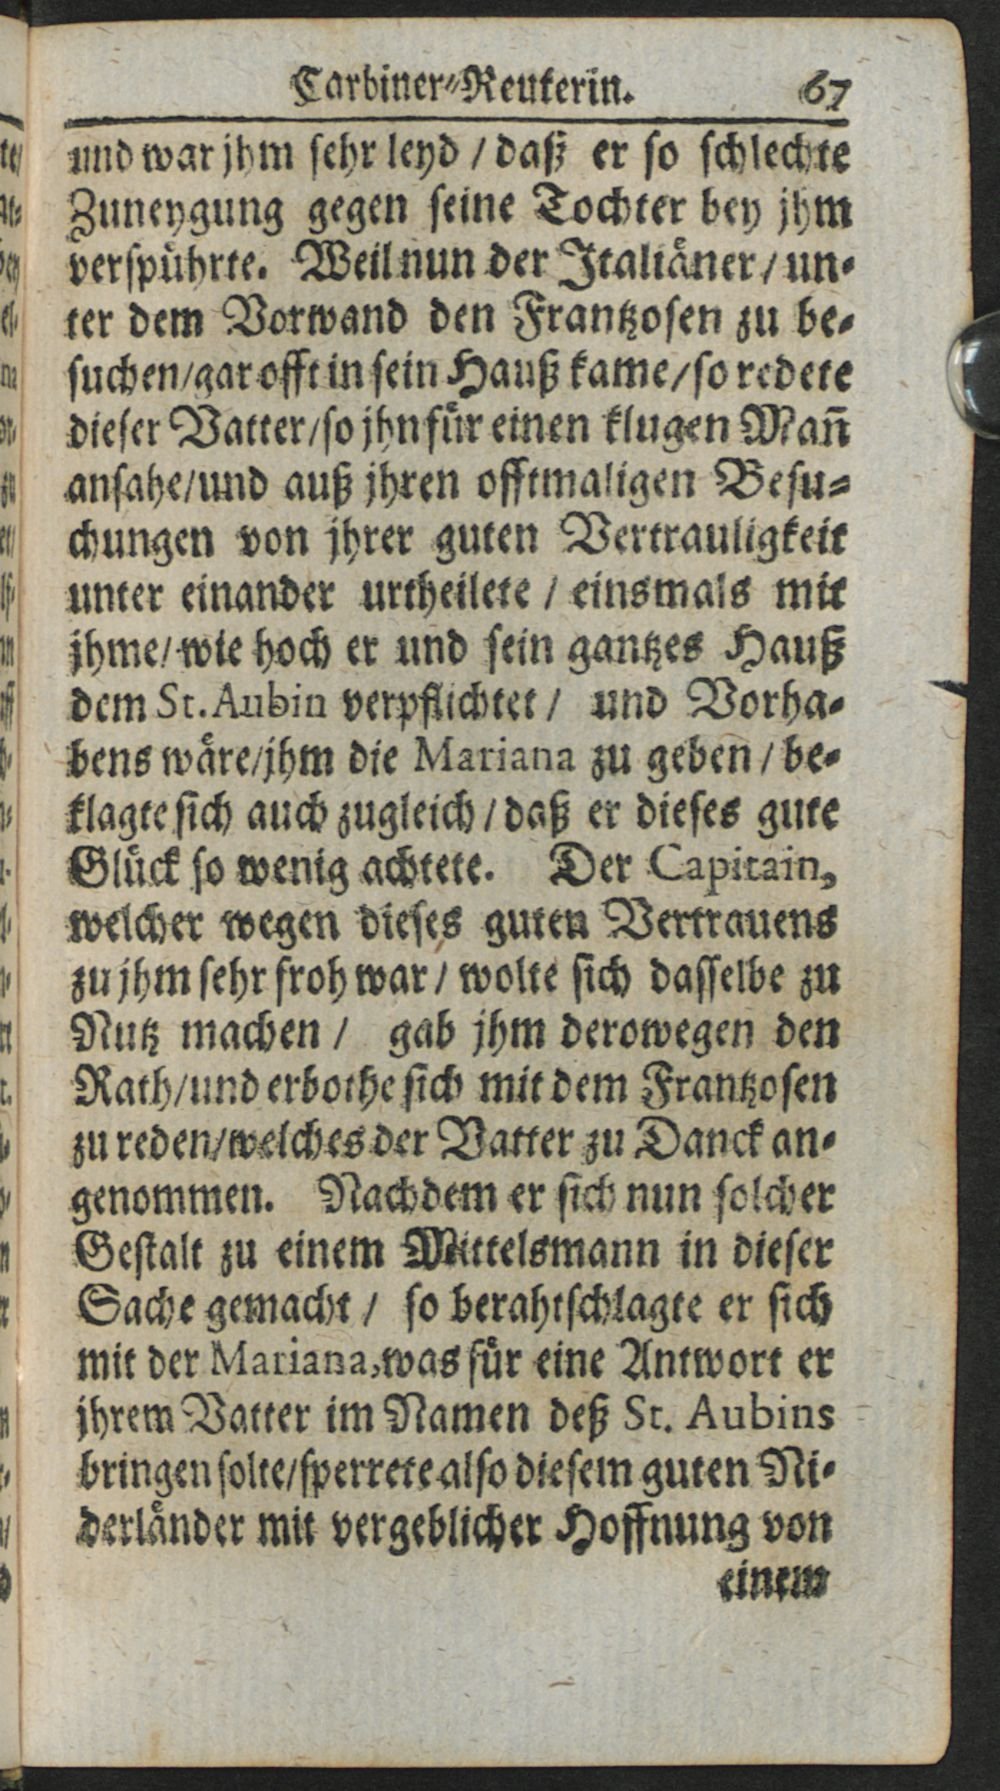 Carbiner-Reuterin. 67
und war jhm sehr leyd / daß er so schlechte
Zuneygung gegen seine Tochter bey jhm
verspührte. Weil nun der Italiäner / un-
ter dem Vorwand den Frantzosen zu be-
suchen / gar offt in sein Hauß kame / so redete
dieser Vatter / so jhn für einen klugen Mañ
ansahe / und auß jhren offtmaligen Besu-
chungen von jhrer guten Vertrauligkeit
unter einander urtheilete / einsmals mit
jhme / wie hoch er und sein gantzes Hauß
dem St. Aubin verpflichtet / und Vorha-
bens wäre / jhm die Mariana zu geben / be-
klagte sich auch zugleich / daß er dieses gute
Glück so wenig achtete. Der Capitain,
welcher wegen dieses guten Vertrauens
zu jhm sehr froh war / wolte sich dasselbe zu
Nutz machen / gab jhm derowegen den
Rath / und erbothe sich mit dem Frantzosen
zu reden / welches der Vatter zu Danck an-
genommen. Nachdem er sich nun solcher
Gestalt zu einem Mittelsmann in dieser
Sache gemacht / so berahtschlagte er sich
mit der Mariana, was für eine Antwort er
jhrem Vatter im Namen deß St. Aubins
bringen solte / sperrete also diesem guten Ni-
derländer mit vergeblicher Hoffnung von
einem